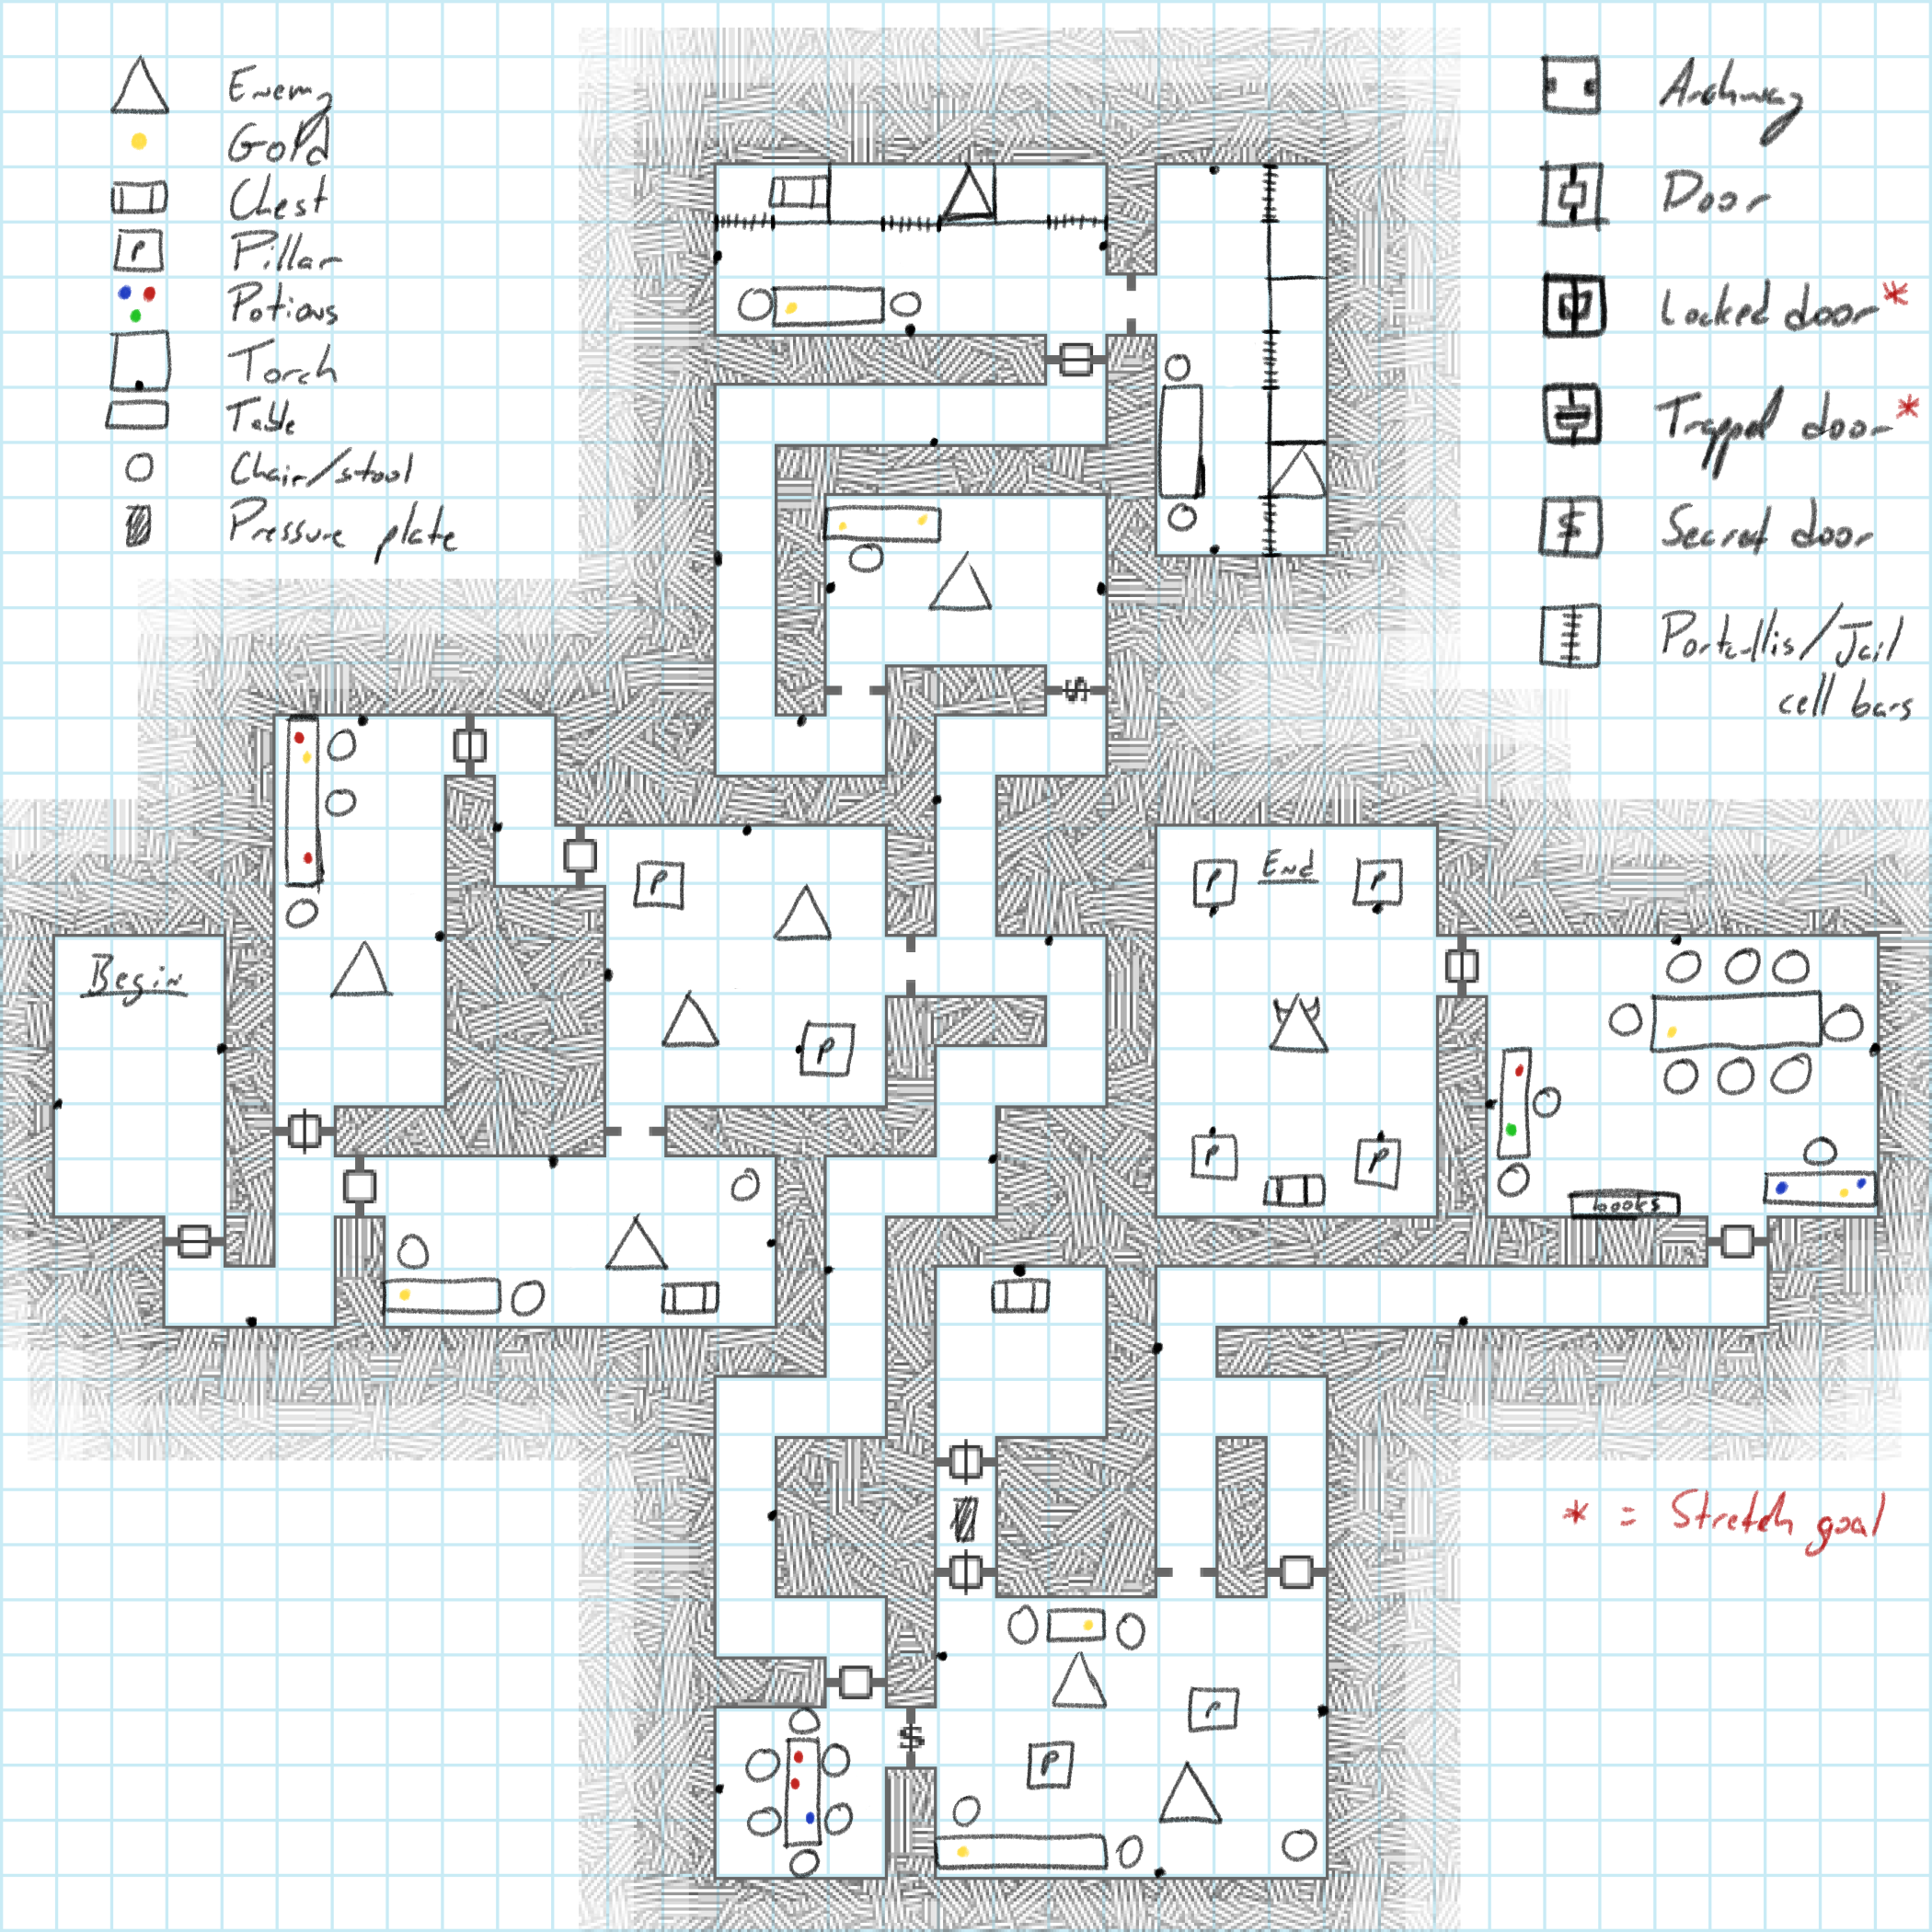 Enemy
Gold
Chest
P Pillar
Potions
Torch
Table
Chair/stool
Pressure plate
Archway
Door
Locked door*
Trapped door*
$ Secret door
Portcullis/Jail
cell bars
$
P
P End P
Begin
P
P P
books
* = Stretch goal
P
$ P